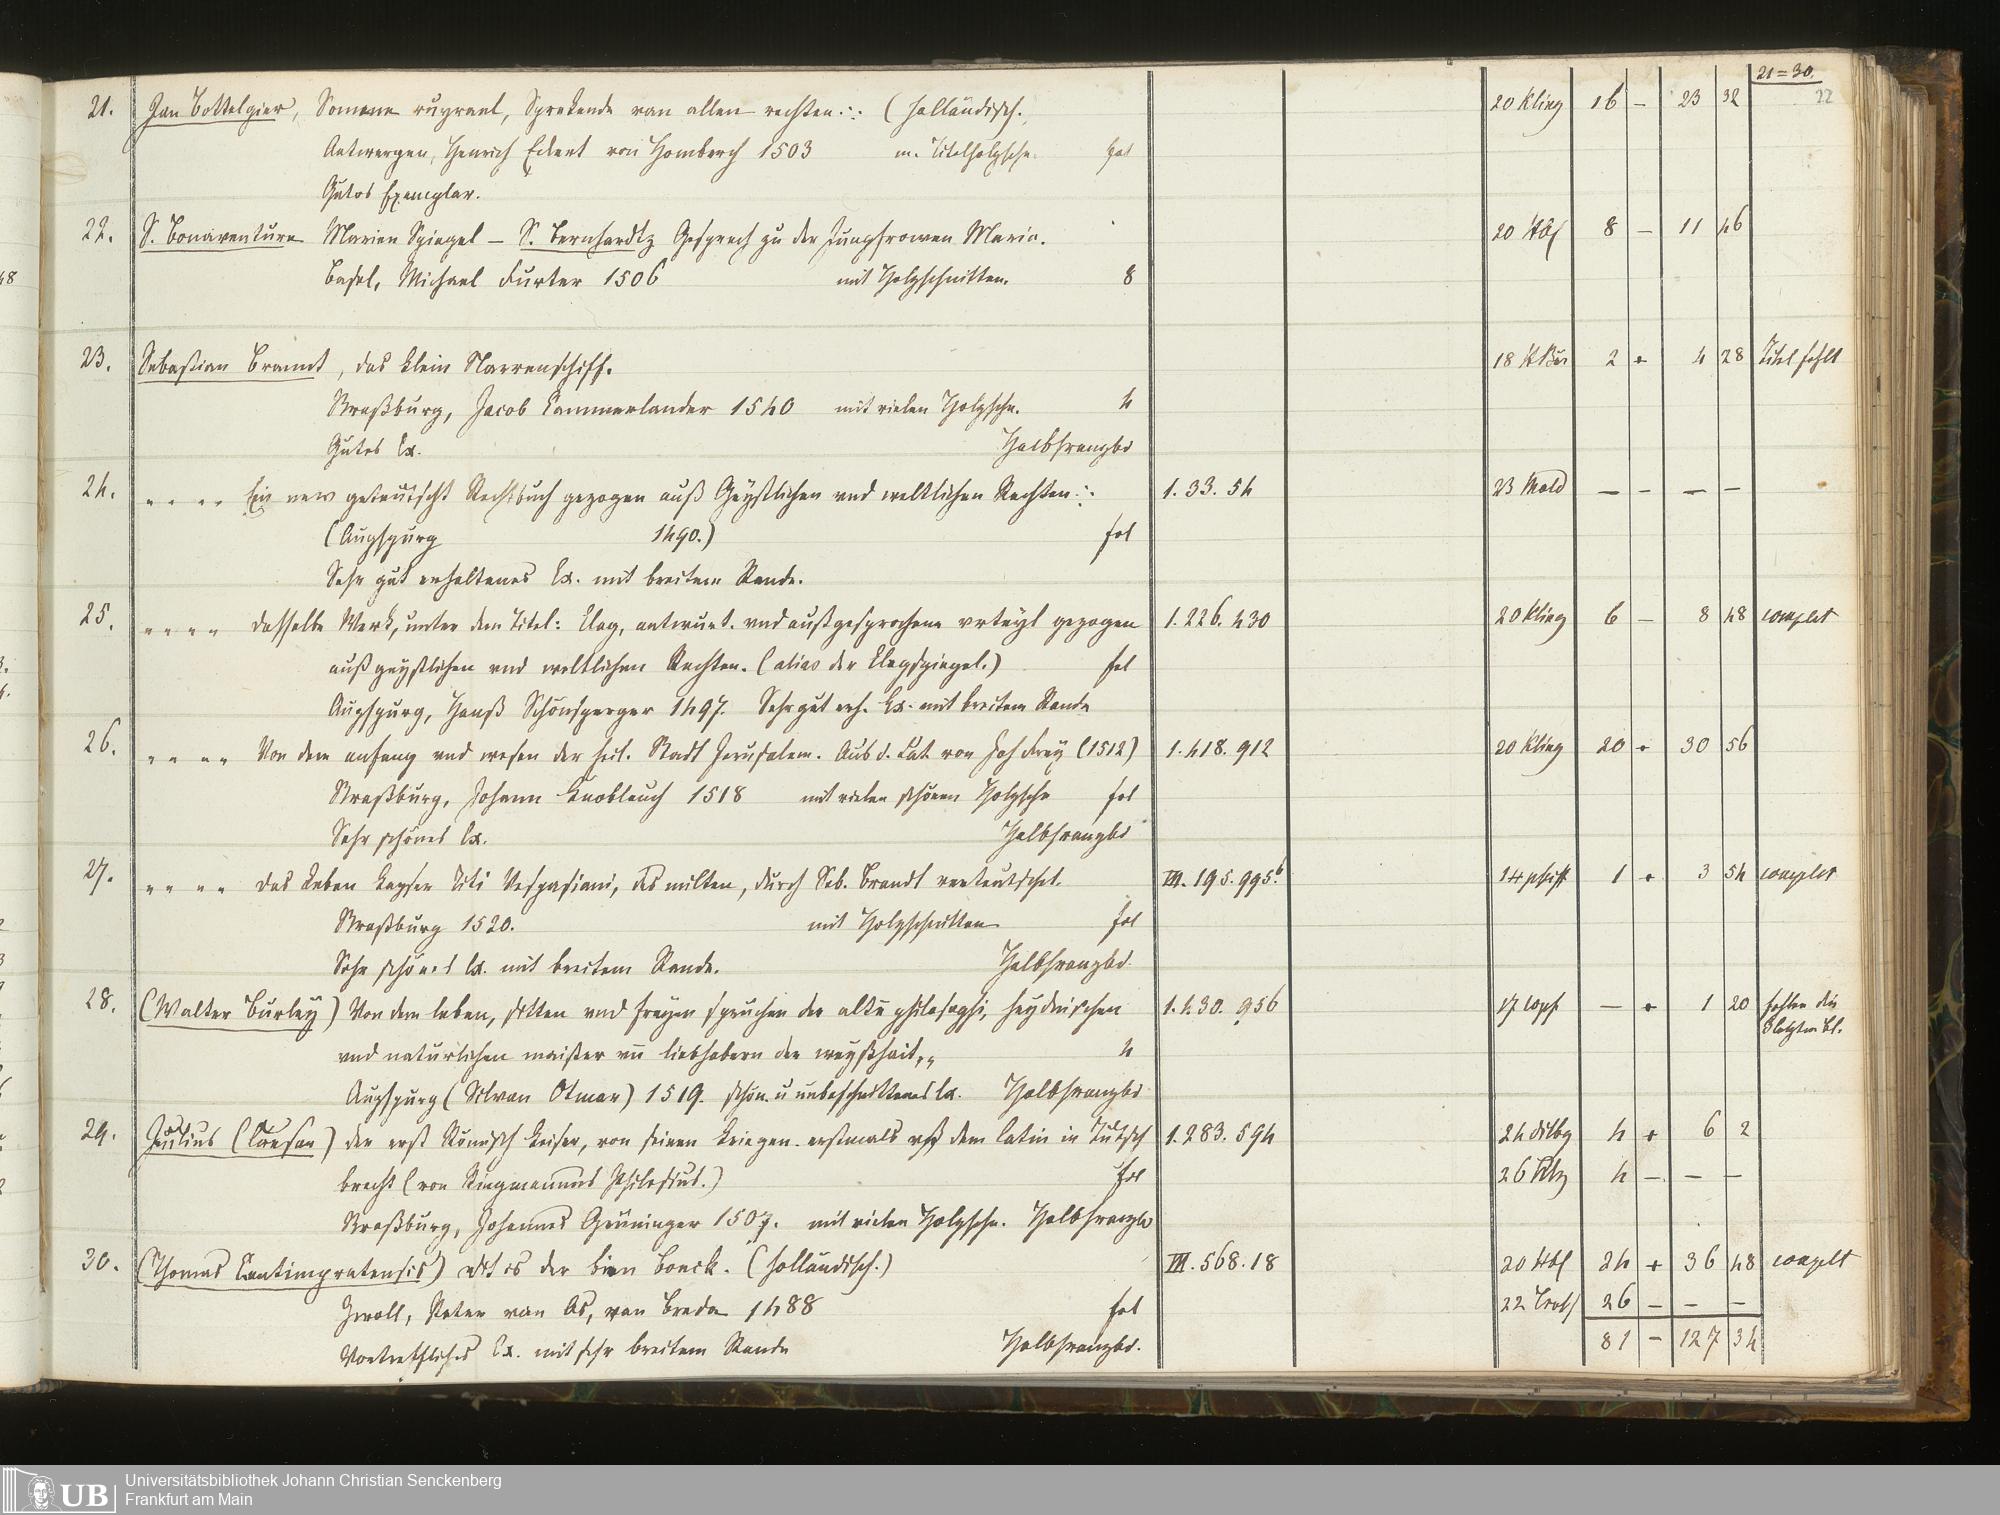 21=30.
22
21. Jan Bottelgier, Somme ruyrael, Sprekende van allen rechten. (holländisch.) 20 Kling 16 – 23 32
Antwerpen, Henrich Eckert von Homberch 1503 m. Titelholzschn. fol
Gutes Exemplar.
22. S. Bonaventura Marien Spiegel – S. Bernhardtz Gesprech zu der Jungfrowen Maria. 20 8 – 11 46
Basel, Michael Furter 1506 mit Holzschnitten. 8
23. Sebastian Brannt, das klein Narrenschiff. 18 2 + 4 28 Titel fehlt
Straßburg, Jacob Cammerlander 1540 mit vielen Holzschn. 4
Gutes Ex. Halbfranzbd
24. „ „ „ „ Ein new geteutscht Rechtbuch gezogen auß Geystlichen vnd weltlichen Rechten 1.33.54 23 – – – –
(Augspurg 1490.) fol
Sehr gut erhaltenes Ex. mit breitem Rande.
25. „ „ „ „ dasselbe Werk, unter dem Titel: Clag, antwurt. vnd außgesprochene vrteyl gezogen 1.226.430 20 Kling 6 – 8 48 complet
auß geystlichen vnd weltlichen Rechten. (alias der Clagspiegel.) fol
Augspurg, Hanß Schönsperger 1497. Sehr gut erh. Ex. mit breitem Rande
26. „ „ „ „ Von dem anfang vnd wesen der heil. Stadt Jerusalem. Aus d. Lat. von Joh Frey (1512) 1.418.912 20 Kling 20 + 30 56
Straßburg, Johann Knoblauch 1518 mit vielen schönen Holzschn fol
Sehr schönes Ex. Halbfranzbd
27. „ „ „ „ das Leben Kayser Titi Vespasiani, des milten, durch Seb. Brandt verteutschet. III.195.995.b 14 1 + 3 54 complet
Straßburg 1520. mit Holzschnitten fol
Sehr schönes Ex. mit breitem Rande. Halbfranzbd.
28. (Walter Burley) Von dem leben, sitten vnd freyen spruchen der alte philosophi, heydnischen 1.430.956 17 – + 1 20 fehlen die
3 letzten Bl.
vnd naturlichen maister vn liebhabern der weyßhait,„ 4
Augspurg (Silvan Otmar) 1519. schön. u unbeschnittenes Ex. Halbfranzbd
29. Julius (Caesar) der erst Römisch Keiser, von seinen kriegen. erstmals vß dem latin in Tütsch 1.283.594 24 dilbg 4 + 6 2
bracht (von Ringmannus Philesius.) fol 26 4 – – –
Straßburg, Johannes Grüninger 1507. mit vielen Holzschn. Halbfranzbd
30. (Thomas Cantimpratensis) dit is der bien boeck. (holländisch.) III.568.18 20 24 + 36 48 complt
Zwoll, Peter van Os, van Breda 1488 fol 22 26 – – –
Vortreffliches Ex. mit sehr breitem Rande Halbfranzbd. 81 – 127 34
48
UB Universitätsbibliothek Johann Christian Senckenberg
Frankfurt am Main